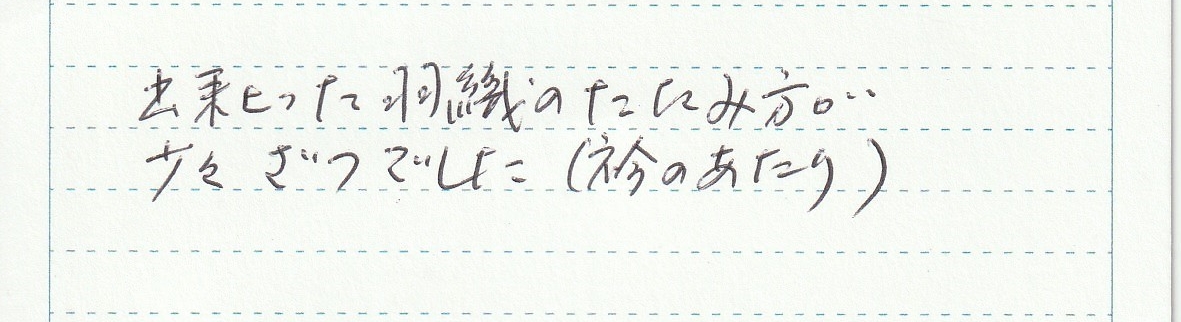 出来上った羽織のたたみ方が‥
少々ざつでした（衿のあたり）